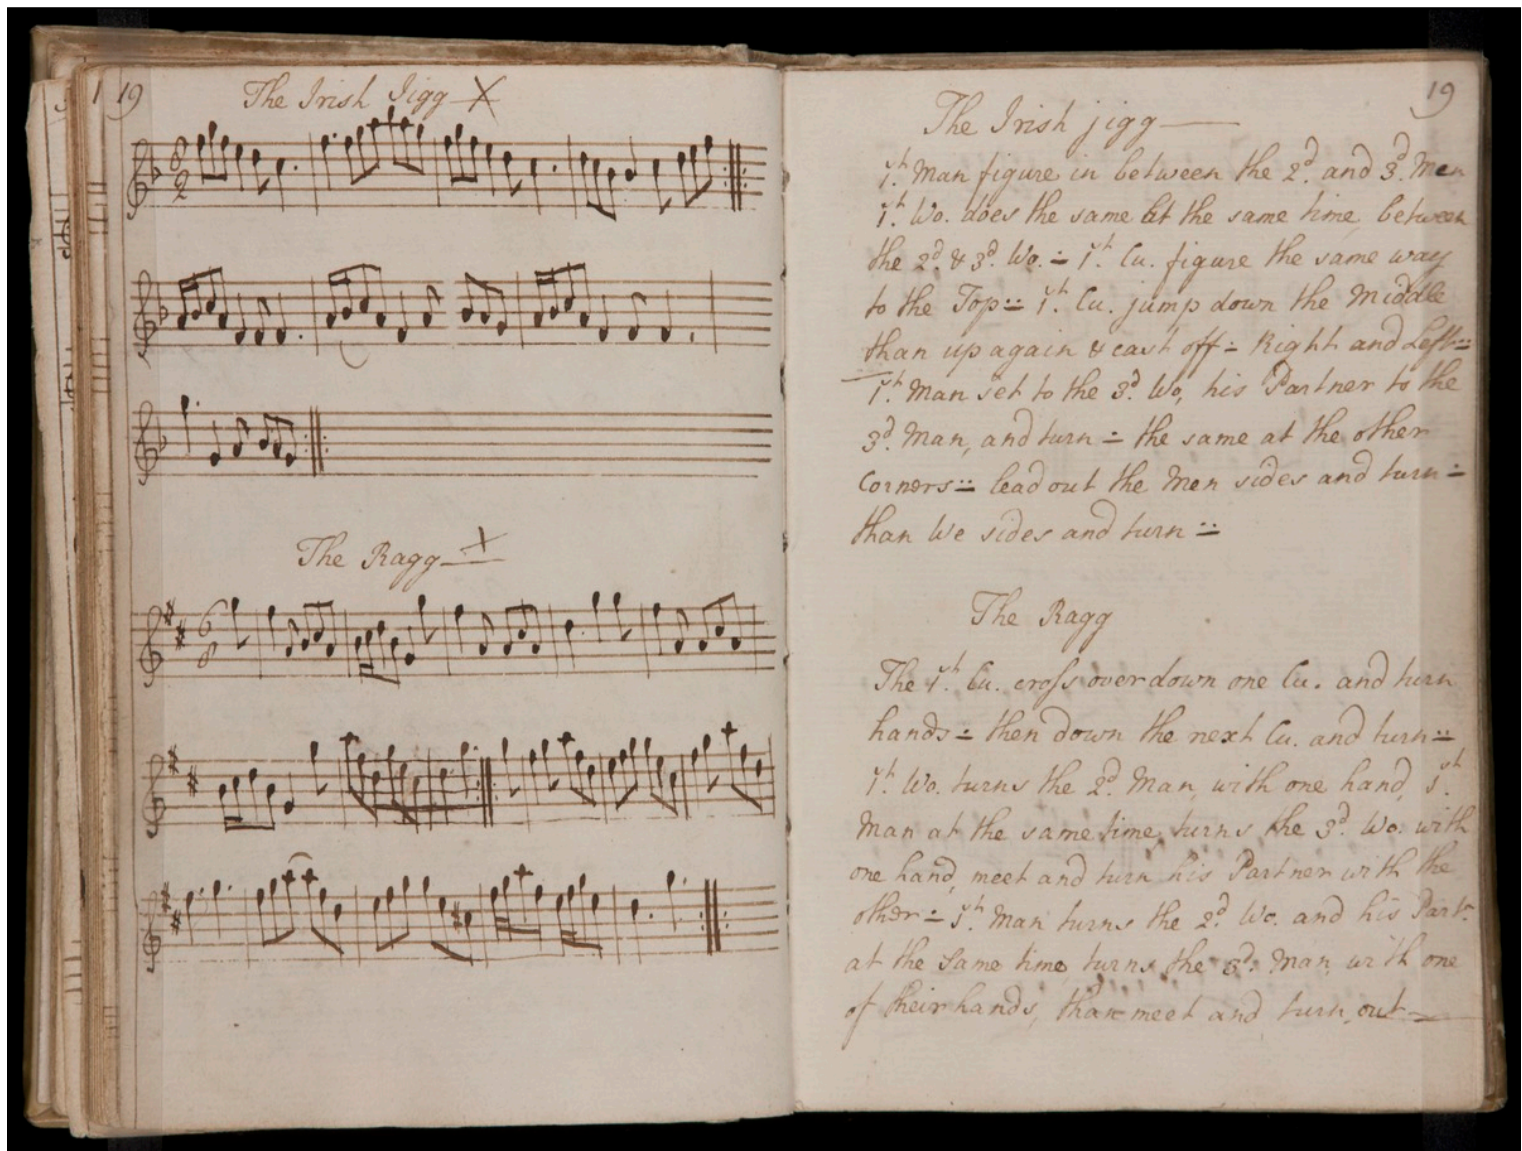 19
The Irish Jigg
The Ragg
6
8
19
The Irish jigg
1st. Man figure in between the 2d. and 3d. Men
1st. Wo. does the same at the same time, between
the 2d. & 3d. Wo. 1st. Cu. figure the same way
to the Top 1st. Cu. jump down the Middle
than up again & cast off Right and Left
1st. Man set to the 3d. Wo, his Partner to the
3d. Man, and turn the same at the other
Corners lead out the Men sides and turn
than We sides and turn
The Ragg
The 1st. Cu. cross over down one Cu. and turn
hands then down the next Cu. and turn
1st. Wo. turns the 2d. Man, with one hand, 1st.
Man at the same time, turns the 3d. Wo. with
one hand, meet and turn his Partner with the
other 1st. Man turns the 2d. Wo. and his Part:
at the same time, turns the 3d. Man, with one
of their hands, than meet and turn out